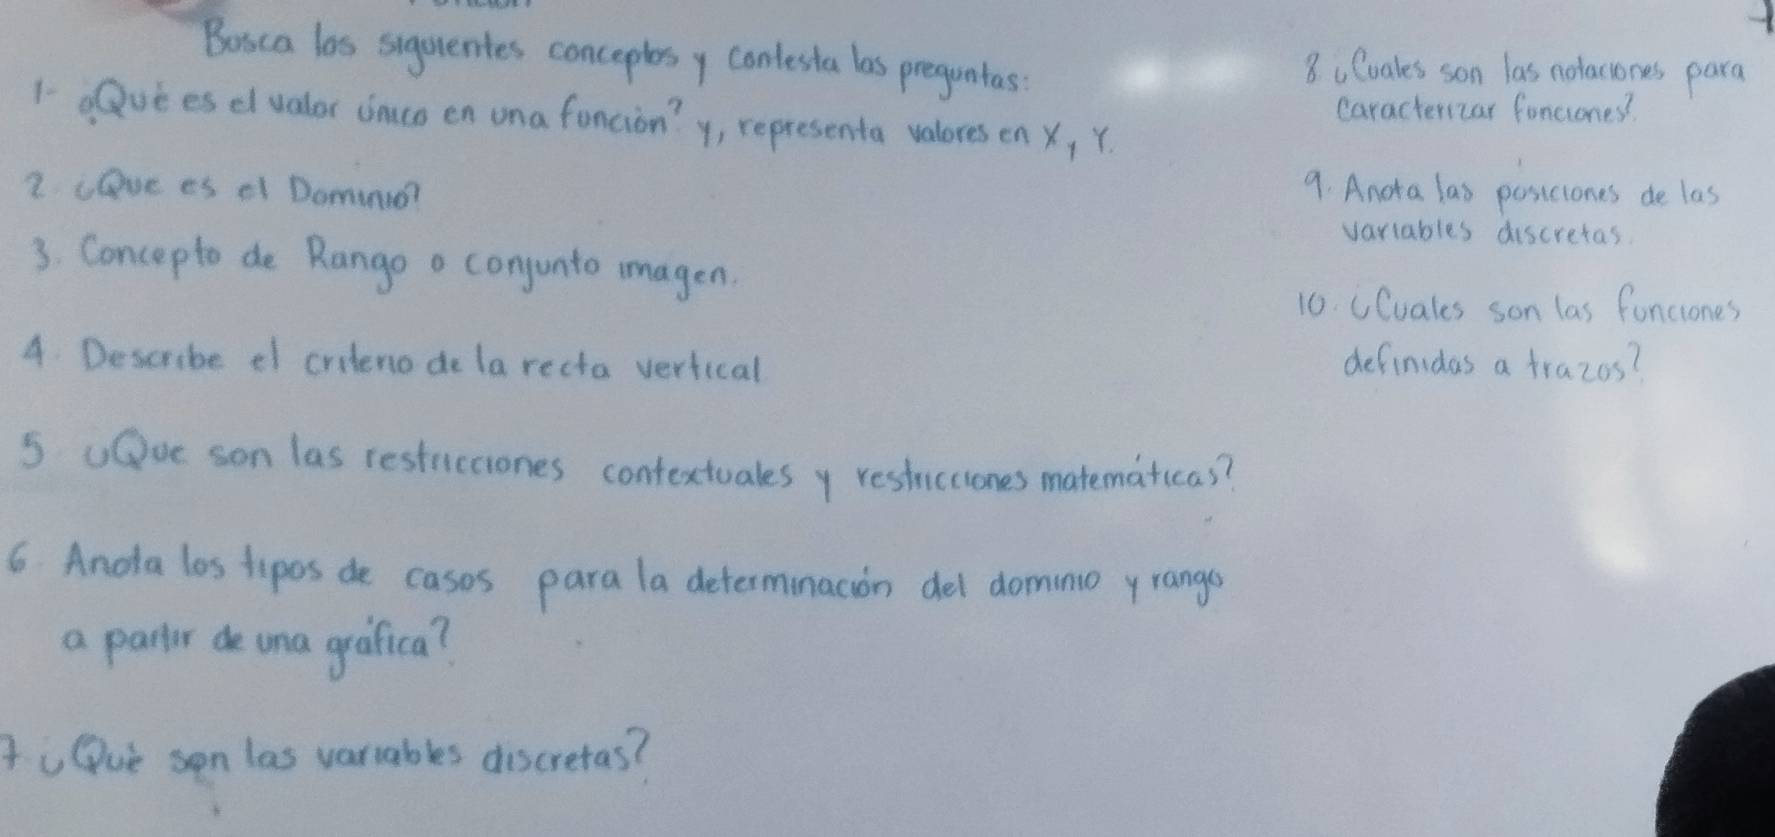 Busca los siguientes conceptos y contesta las preguntas:
1- ¿Qué es el valor único en una función? y, representa valores en X, Y.
2. ¿Que es el Dominio?
3. Concepto de Rango o conjunto imagen.
4. Describe el criterio de la recta vertical
5 ¿Que son las restricciones contextuales y restricciones matemáticas?
6. Anota los tipos de casos para la determinación del dominio y rango
a partir de una gráfica?
7 ¿Qué son las variables discretas?
8 ¿Cuales son las notaciones para
caracterizar funciones?
9. Anota las posiciones de las
variables discretas.
10. ¿Cuales son las funciones
definidas a trazos?